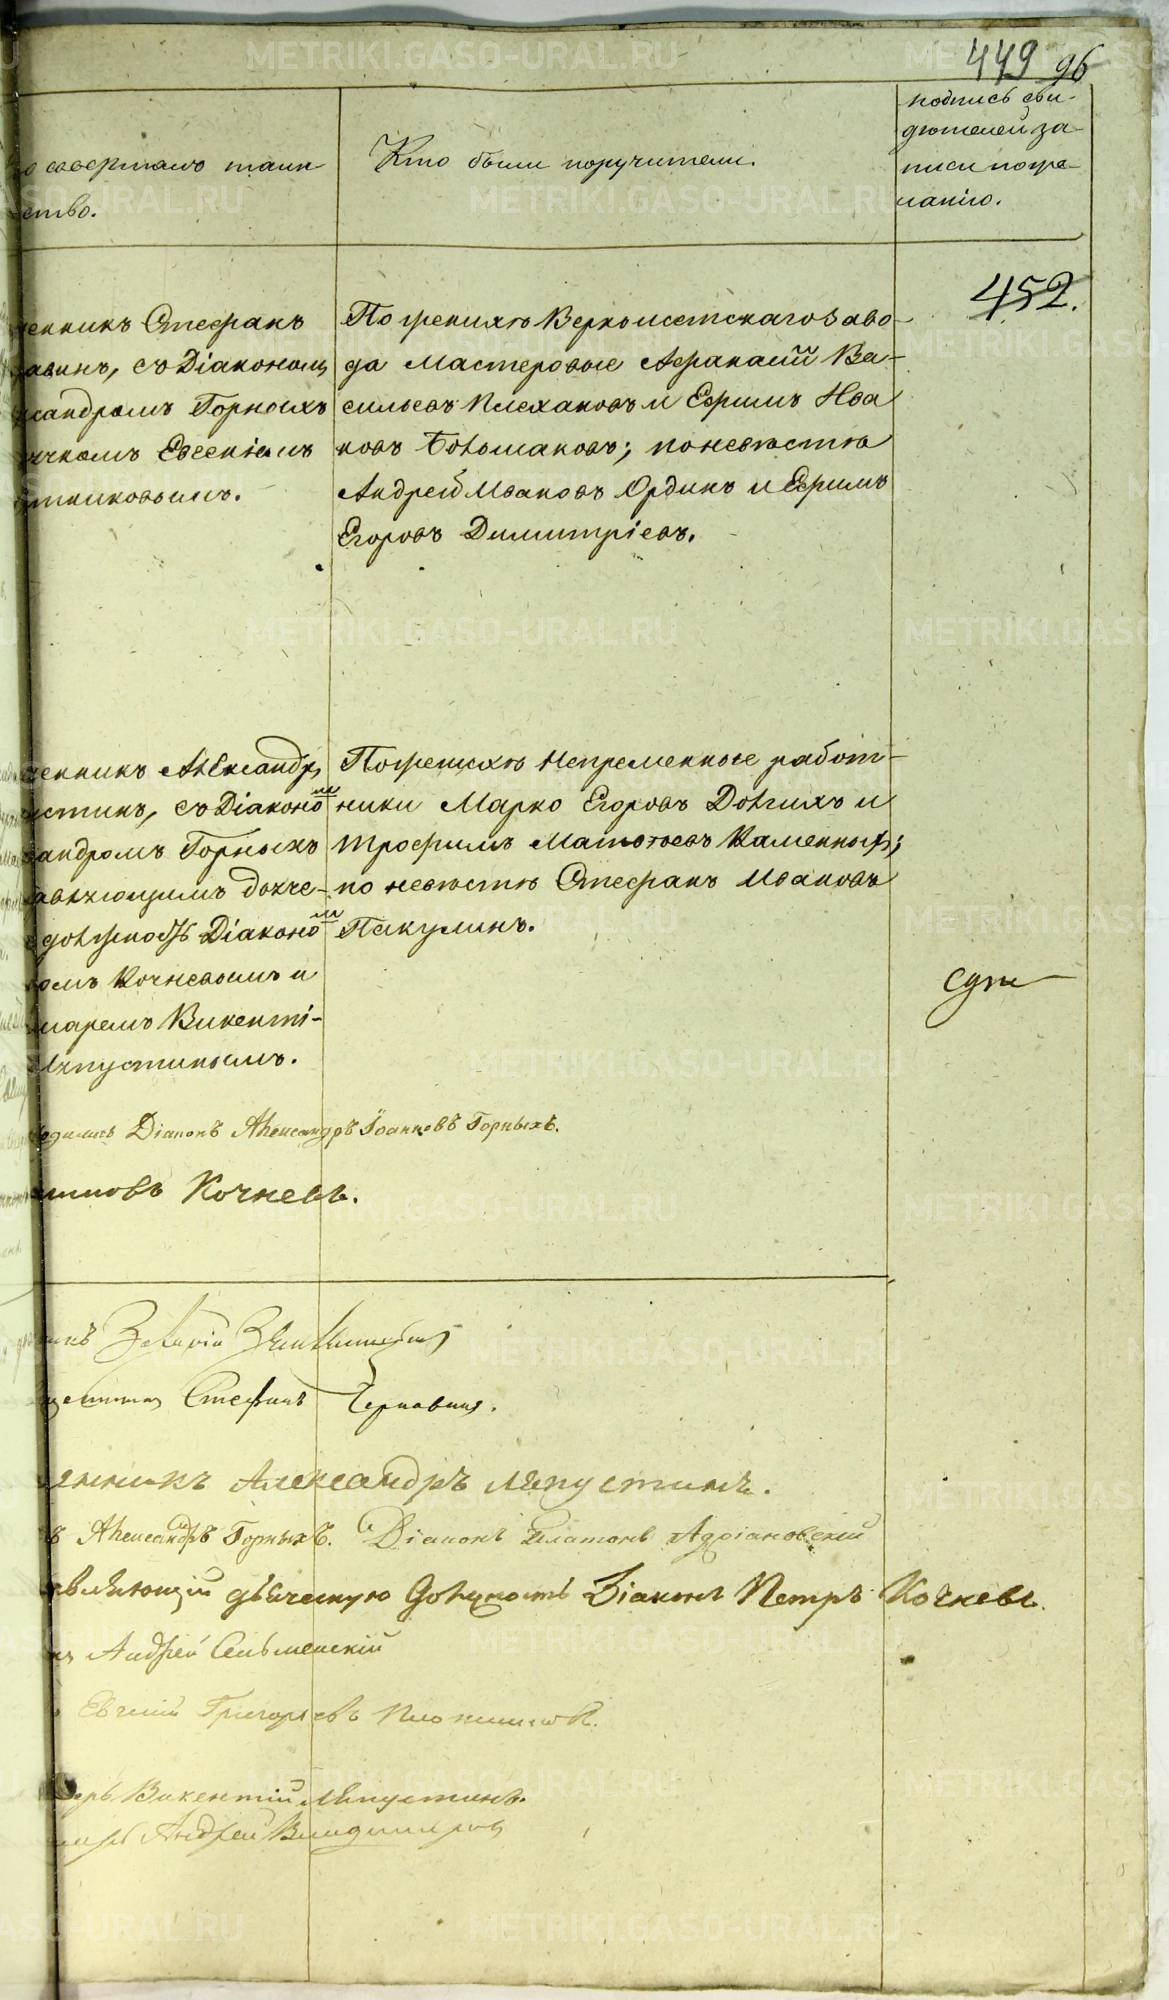 449 96
о совершалъ таин
ство.
Кто были поручители.
подпись сви-
дѣтелей за-
писи по же-
ланію.
452.
щенникъ Стефанъ
навинъ, съ Діакономъ
ксандромъ Горныхъ
ячкомъ Евгеніемъ
отниковымъ.
По женихѣ Верхъисетскаго Заво-
да мастеровые Афанасій Ва-
сильевъ Плехановъ и Ефимъ Ива
новъ Большаковъ; по невѣстѣ
Андрей Ивановъ Ординъ и Ефимъ
Егоровъ Димитріевъ.
щенникъ Александръ
пустинъ, съ Діакономъ
сандромъ Горныхъ
равляющимъ дьяче-
должность Діакономъ
ромъ Кочневымъ и
маремъ Викенті-
Ляпустинымъ.
По женихѣ непременные работ-
ники Марко Егоровъ Долгихъ и
Трофимъ Матвѣевъ Каменныхъ;
по невѣстѣ Стефанъ Ивановъ
Пакулинъ.
Діаконъ Александръ Іоанновъ Горныхъ.
Кочневъ.
Стефанъ Чернавинъ.
щенникъ Александръ Ляпустинъ.
ъ Александръ Горныхъ. Діаконъ Платонъ Адріановскій
авляющій дьяческую должность Діаконъ Петръ Кочневъ.
Андрей Сельменскій
Евгеній Григорьевъ Плотниковъ.
арь Викентій Ляпустинъ.
марь Андрей Владимировъ
METRIKI.GASO-URAL.RU